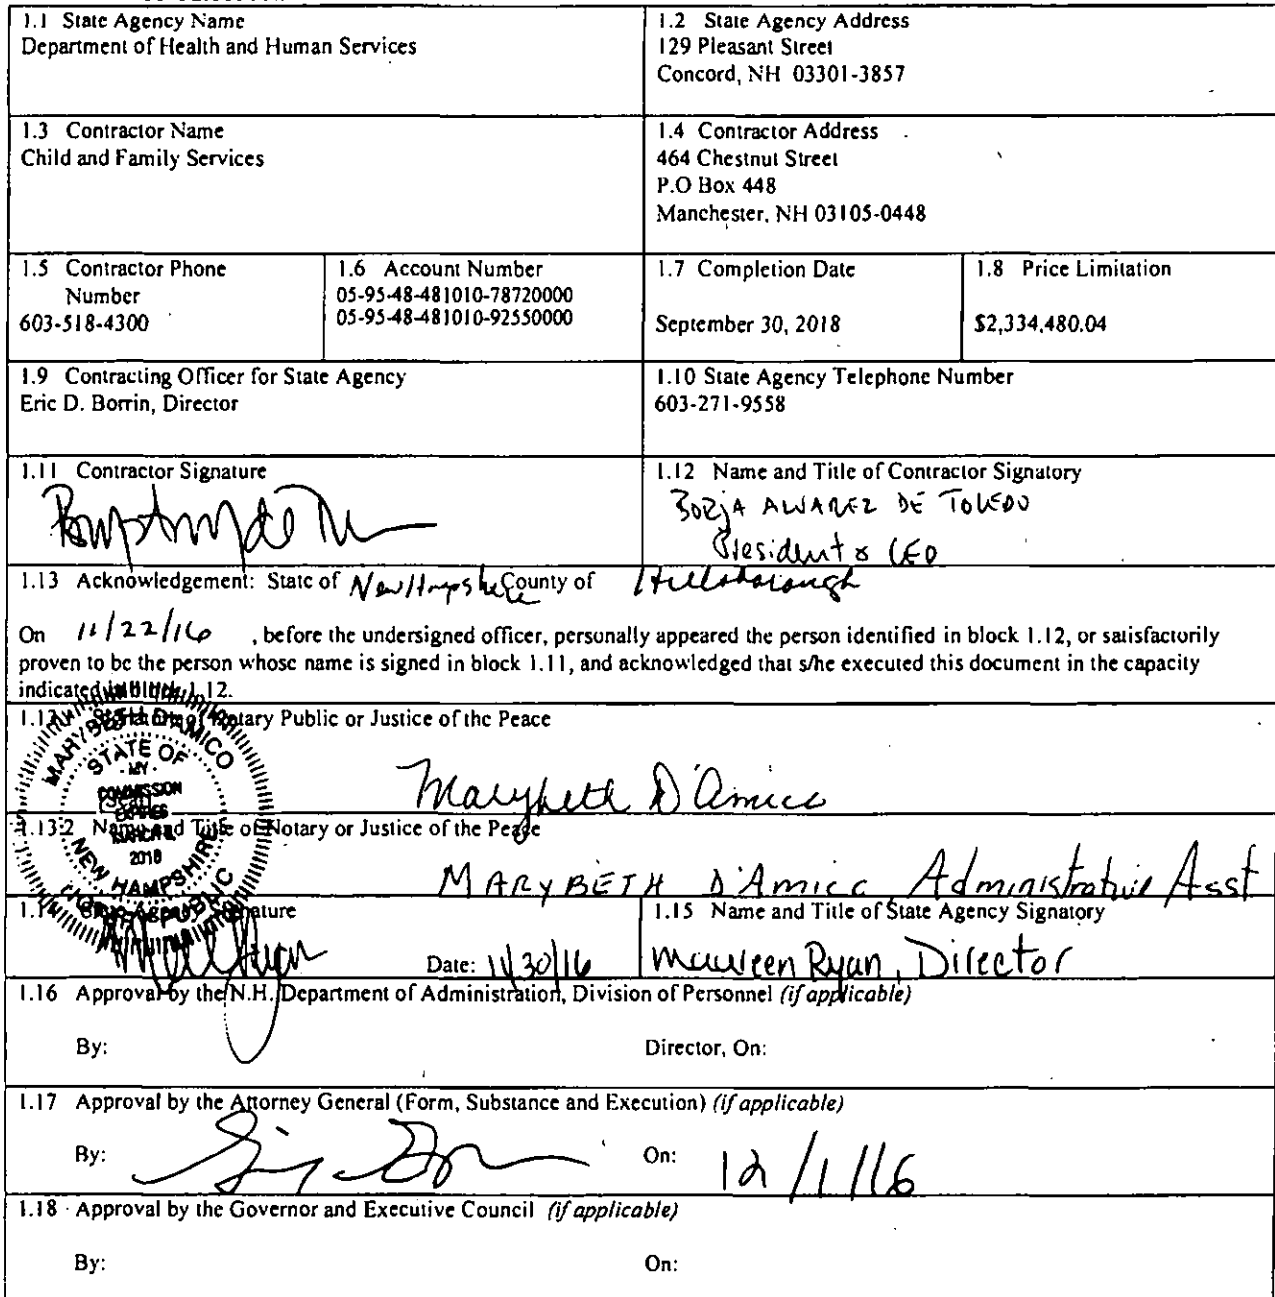 1.1 State Agency Name
Department of Health and Human Services
1.2 State Agency Address
129 Pleasant Street
Concord, NH 03301-3857
1.3 Contractor Name
Child and Family Services
1.4 Contractor Address
464 Chestnut Street
P.O Box 448
Manchester, NH 03105-0448
1.5 Contractor Phone
Number
603-518-4300
1.6 Account Number
05-95-48-481010-78720000
05-95-48-481010-92550000
1.7 Completion Date
September 30, 2018
1.8 Price Limitation
$2,334,480.04
1.9 Contracting Officer for State Agency
Eric D. Borrin, Director
1.10 State Agency Telephone Number
603-271-9558
1.11 Contractor Signature
1.12 Name and Title of Contractor Signatory
BORJA ALVAREZ DE TOLEDO
President & CEO
1.13 Acknowledgement: State of New Hampshire County of Hillsborough
On 11/22/16 , before the undersigned officer, personally appeared the person identified in block 1.12, or satisfactorily
proven to be the person whose name is signed in block 1.11, and acknowledged that s/he executed this document in the capacity
indicated in block 1.12.
1.13.1 Signature of Notary Public or Justice of the Peace
MARYBETH D'AMICO
STATE OF
MY
COMMISSION
EXPIRES
2018
NEW HAMPSHIRE
NOTARY PUBLIC
Marybeth D'Amico
1.13.2 Name and Title of Notary or Justice of the Peace
MARYBETH D'Amico Administrative Asst
1.14 State Agency Signature
Date: 11/30/16
1.15 Name and Title of State Agency Signatory
Maureen Ryan, Director
1.16 Approval by the N.H. Department of Administration, Division of Personnel (if applicable)
By:
Director, On:
1.17 Approval by the Attorney General (Form, Substance and Execution) (if applicable)
By:
On: 12/1/16
1.18 Approval by the Governor and Executive Council (if applicable)
By:
On: